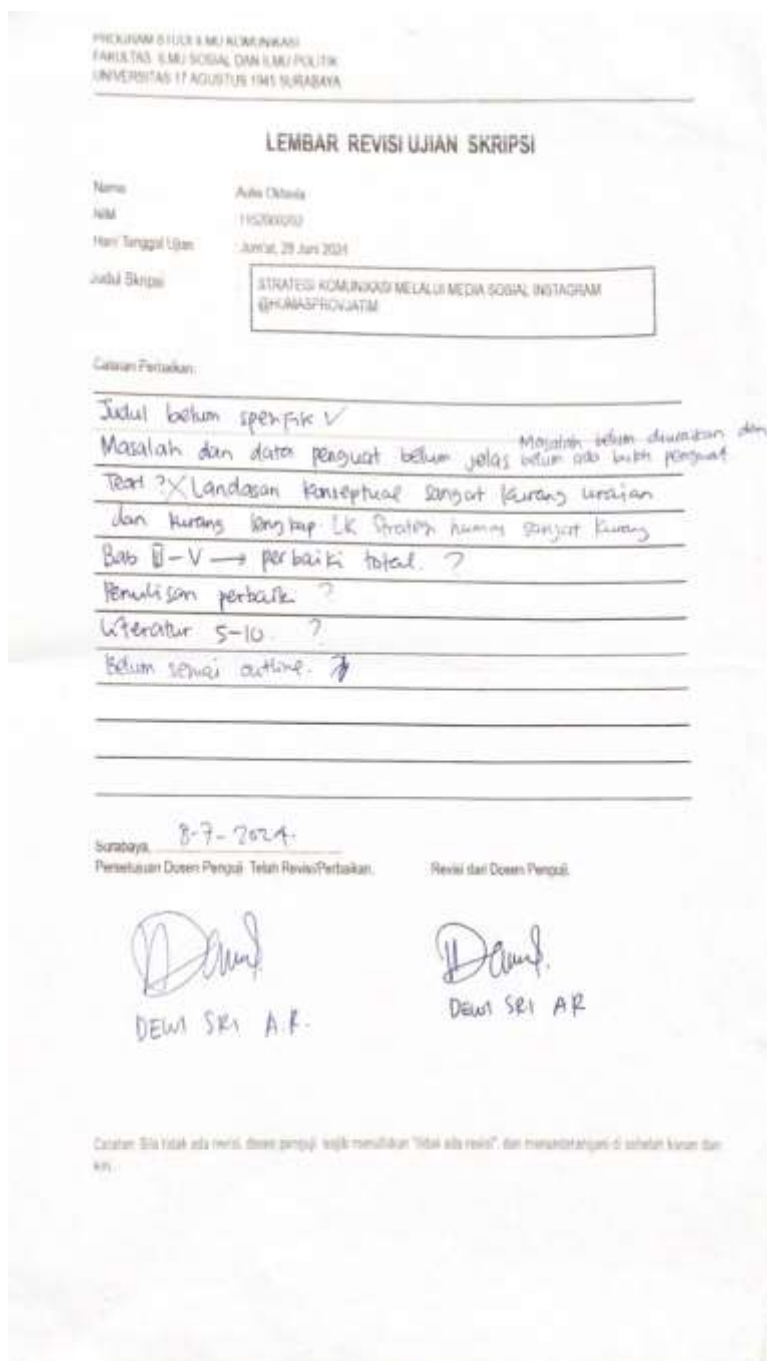 PROGRAM STUDI ILMU KOMUNIKASI
FAKULTAS ILMU SOSIAL DAN ILMU POLITIK
UNIVERSITAS 17 AGUSTUS 1945 SURABAYA
LEMBAR REVISI UJIAN SKRIPSI
Nama Aulia Oktavia
NIM
Hari/Tanggal Ujian Jum'at, 28 Juni 2024
Judul Skripsi STRATEGI KOMUNIKASI MELALUI MEDIA SOSIAL INSTAGRAM
@HUMASPROVJATIM
Catatan Perbaikan:
Judul belum spesifik V
Masalah belum diuraikan dan
Masalah dan data penguat belum jelas belum ada bukti penguat
Teori ? X Landasan konseptual sangat kurang uraian
dan kurang lengkap LK Strategi humas sangat kurang
Bab - V → perbaiki total. ?
Penulisan perbaiki ?
Literatur 5-10. ?
Belum sesuai outline.
Surabaya, 8-7-2024.
Persetujuan Dosen Penguji Telah Revisi/Perbaikan. Revisi dari Dosen Penguji.
DEWI SRI A.R. DEWI SRI AR
Catatan: Bila tidak ada revisi, dosen penguji wajib menuliskan "tidak ada revisi", dan menandatangani di sebelah kanan dan
kiri.